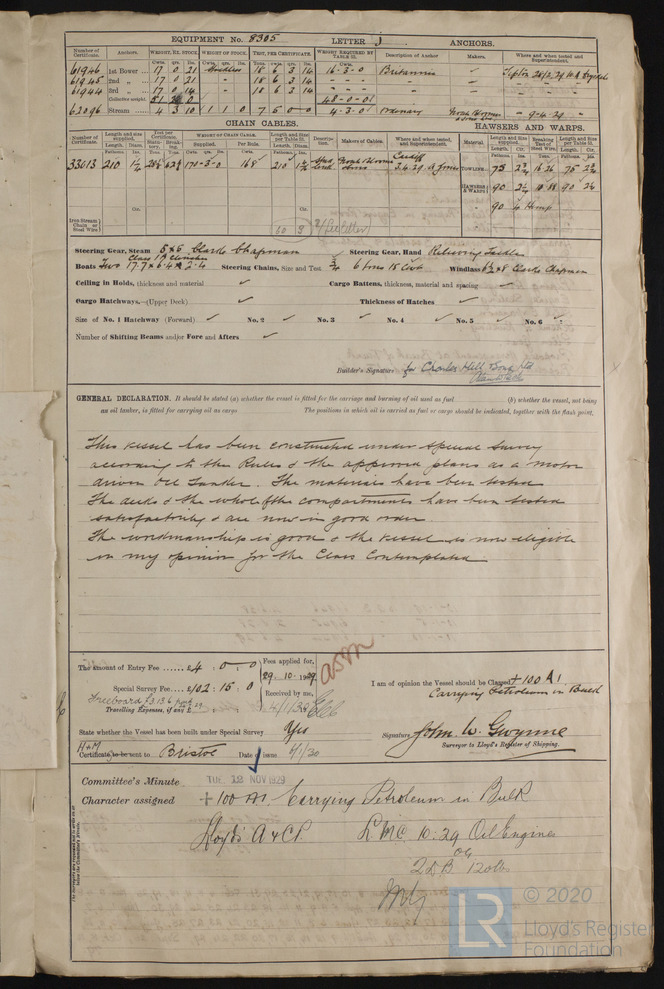 EQUIPMENT No. 8305 LETTER J ANCHORS.
Number of Certificate. Anchors. WEIGHT, EX. STOCK WEIGHT OF STOCK. TEST, PER CERTIFICATE. WEIGHT REQUIRED BY TABLE 31. Description of Anchor Makers. Where and when tested and Superintendent.
Cwts. qrs. lbs. Cwts. qrs. lbs. Tons. cwts. qrs. lbs. Cwts. qrs. lbs.
61946 1st Bower 17 0 21 Stockless 18 6 3 14 16-3-0 Britannia Tipton 28/2/29
61945 2nd " 17 0 21 " 18 6 3 14
61944 3rd " 17 0 14 " 18 6 3 14
Collective weight 51 2 0 48-0-0
62096 Stream 4 3 10 1 1 0 7 5 0 0 4-3-0 Ordinary " 9-4-29
CHAIN CABLES. HAWSERS AND WARPS.
Number of Certificate. Length and size supplied. Test per Certificate. WEIGHT OF CHAIN CABLE. Length and Size per Table 31. Description. Makers of Cables. Where and when tested, and Superintendent. Material. Length and size supplied. Breaking Test of Steel Wire. Length and Size per Table 31.
Length. Diam. Statutory. Breaking. Supplied. Per Rule. Length. Diam. Length. Cir. Length. Cir.
33013 210 171-3-0 168 210 Stud link Cardiff 3.4.29 TOWLINE 75 75
HAWSERS & WARPS 90 90
" 90 Hemp
Iron Stream Chain or Steel Wire 60
Steering Gear, Steam 5x5 Clarke Chapman Steering Gear, Hand Relieving Tackles
Boats Two Class 1A Clincher 17.7 x 6.4 x 2.4 Steering Chains, Size and Test 3/4 6 tons 15 Cwt Windlass 6½x8 Clarke Chapman
Ceiling in Holds, thickness and material ✓ Cargo Battens, thickness, material and spacing ✓
Cargo Hatchways.—(Upper Deck) ✓ Thickness of Hatches ✓
Size of No. 1 Hatchway (Forward) ✓ No. 2 ✓ No. 3 ✓ No. 4 ✓ No. 5 ✓ No. 6 ✓
Number of Shifting Beams and/or Fore and Afters ✓
Builder's Signature for Charles Hill & Sons Ltd
GENERAL DECLARATION. It should be stated (a) whether the vessel is fitted for the carriage and burning of oil used as fuel (b) whether the vessel, not being
an oil tanker, is fitted for carrying oil as cargo The positions in which oil is carried as fuel or cargo should be indicated, together with the flash point.
This vessel has been constructed under Special Survey
according to the Rules & the approved plans as a motor
driven Oil Tanker. The materials have been tested
The decks & the whole of the compartments have been tested
satisfactorily & are now in good order.
The workmanship is good & the vessel is now eligible
in my opinion for the Class Contemplated
The amount of Entry Fee £4 : 0 : 0
Fees applied for, 29.10.1929
Special Survey Fee £102 : 15 : 0
Received by me, 4/1/30
Freeboard £3.13.6
Travelling Expenses, if any £
I am of opinion the Vessel should be Classed +100 A1
Carrying Petroleum in Bulk
State whether the Vessel has been built under Special Survey Yes
Signature John W. Gwynne
Surveyor to Lloyd's Register of Shipping.
H+M
Certificate to be sent to Bristol Date of issue 6/1/30
Committee's Minute TUE 12 NOV 1929
Character assigned +100 A1 Carrying Petroleum in Bulk
Lloyd's A & CP. LMC 10.29 Oil Engines
OG
2 DB 120 lbs
The surveyors are requested not to write on or below the Committee's Minute.
© 2020
LR
Lloyd's Register
Foundation